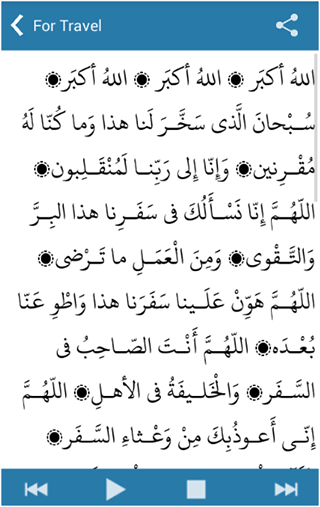 For Travel
اللهُ أكبَر ۝ اللهُ أكبَر ۝ اللهُ أكبَر۝
سُـبْحانَ الَّذى سَخَّـرَ لَنا هذا وَما كُنّا لَهُ
مُقْـرِنين۝ وَإِنّا إِلى رَبِّنـا لَمُنْقَـلِبون۝
اللّهُـمَّ إِنّا نَسْـأَلُكَ فى سَفَـرِنا هذا البِـرَّ
وَالتَّـقْوى۝ وَمِنَ الْعَمَـلِ ما تَـرْضى۝
اللّهُـمَّ هَوِّنْ عَلَـينا سَفَرَنا هذا وَاطْوِ عَنّا
بُعْـدَه۝ اللّهُـمَّ أَنْـتَ الصّـاحِبُ فى
السَّـفَر۝ وَالْخَلـيفَةُ فى الأهـلِ۝ اللّهُـمَّ
إِنّـى أَعـوذُبِكَ مِنْ وَعْـثاءِ السَّـفَر۝